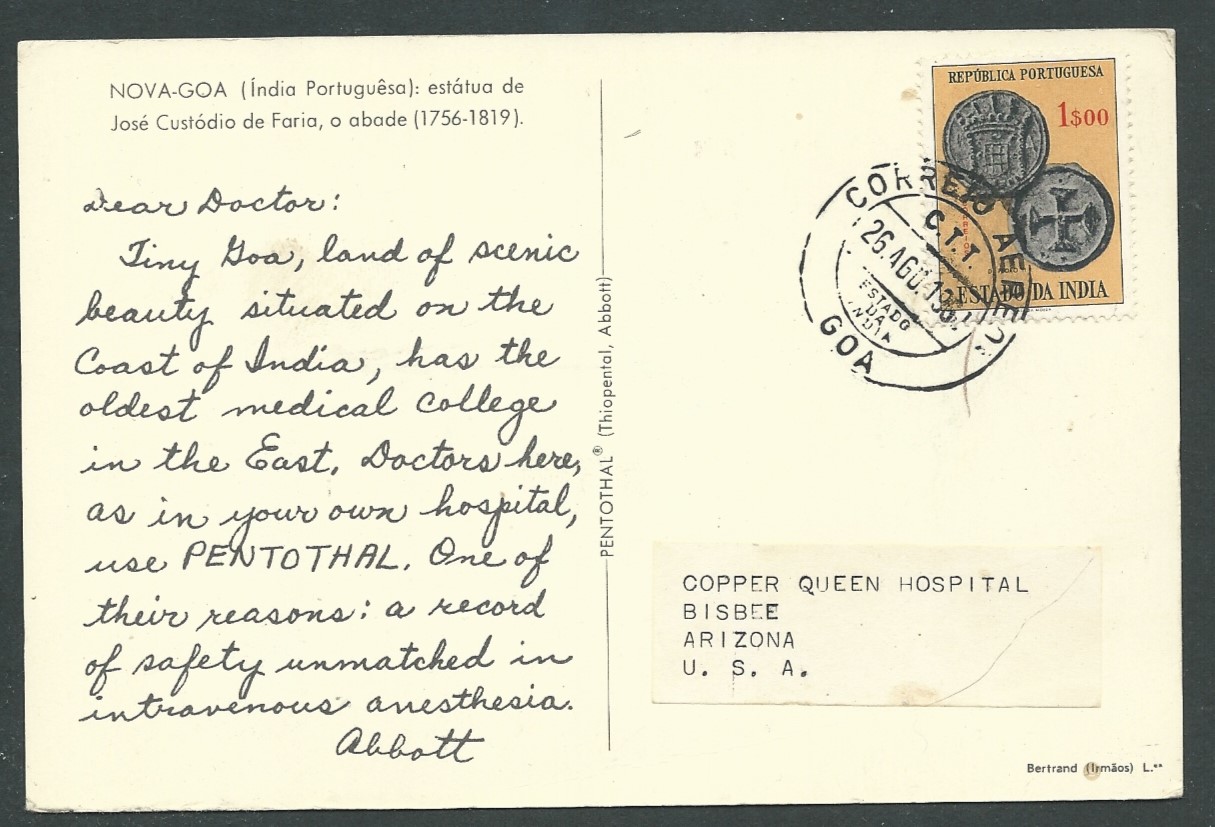 NOVA-GOA (Índia Portuguêsa): estátua de
José Custódio de Faria, o abade (1756-1819).
Dear Doctor:
Tiny Goa, land of scenic
beauty situated on the
Coast of India, has the
oldest medical college
in the East. Doctors here,
as in your own hospital,
use PENTOTHAL. One of
their reasons: a record
of safety unmatched in
intravenous anesthesia.
Abbott
PENTOTHAL® (Thiopental, Abbott)
REPÚBLICA PORTUGUESA
1$00
ESTADO DA INDIA
CORREIO AEREO
C.T.T.
26.AGO.
ESTADO
DA
INDIA
GOA
COPPER QUEEN HOSPITAL
BISBEE
ARIZONA
U. S. A.
Bertrand (Irmãos) L.